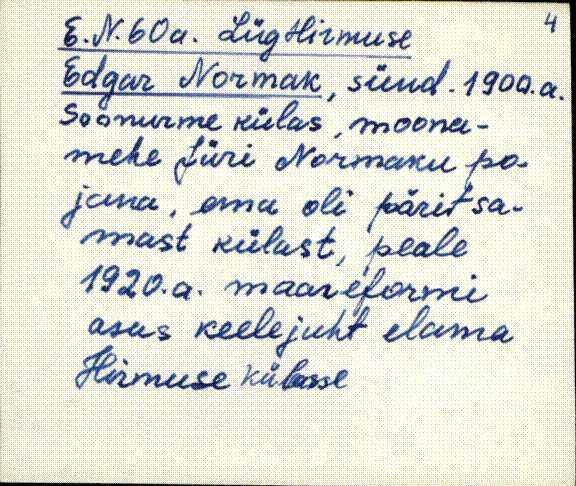 4
E.N. 60a. Lüg Hirmuse
Edgar Normak, sünd. 1900.a.
Soonurme külas, moona-
mehe Jüri Normaku po-
jana, ema oli pärit sa-
mast külast, peale
1920.a. maareformi
asus keelejuht elama
Hirmuse külasse